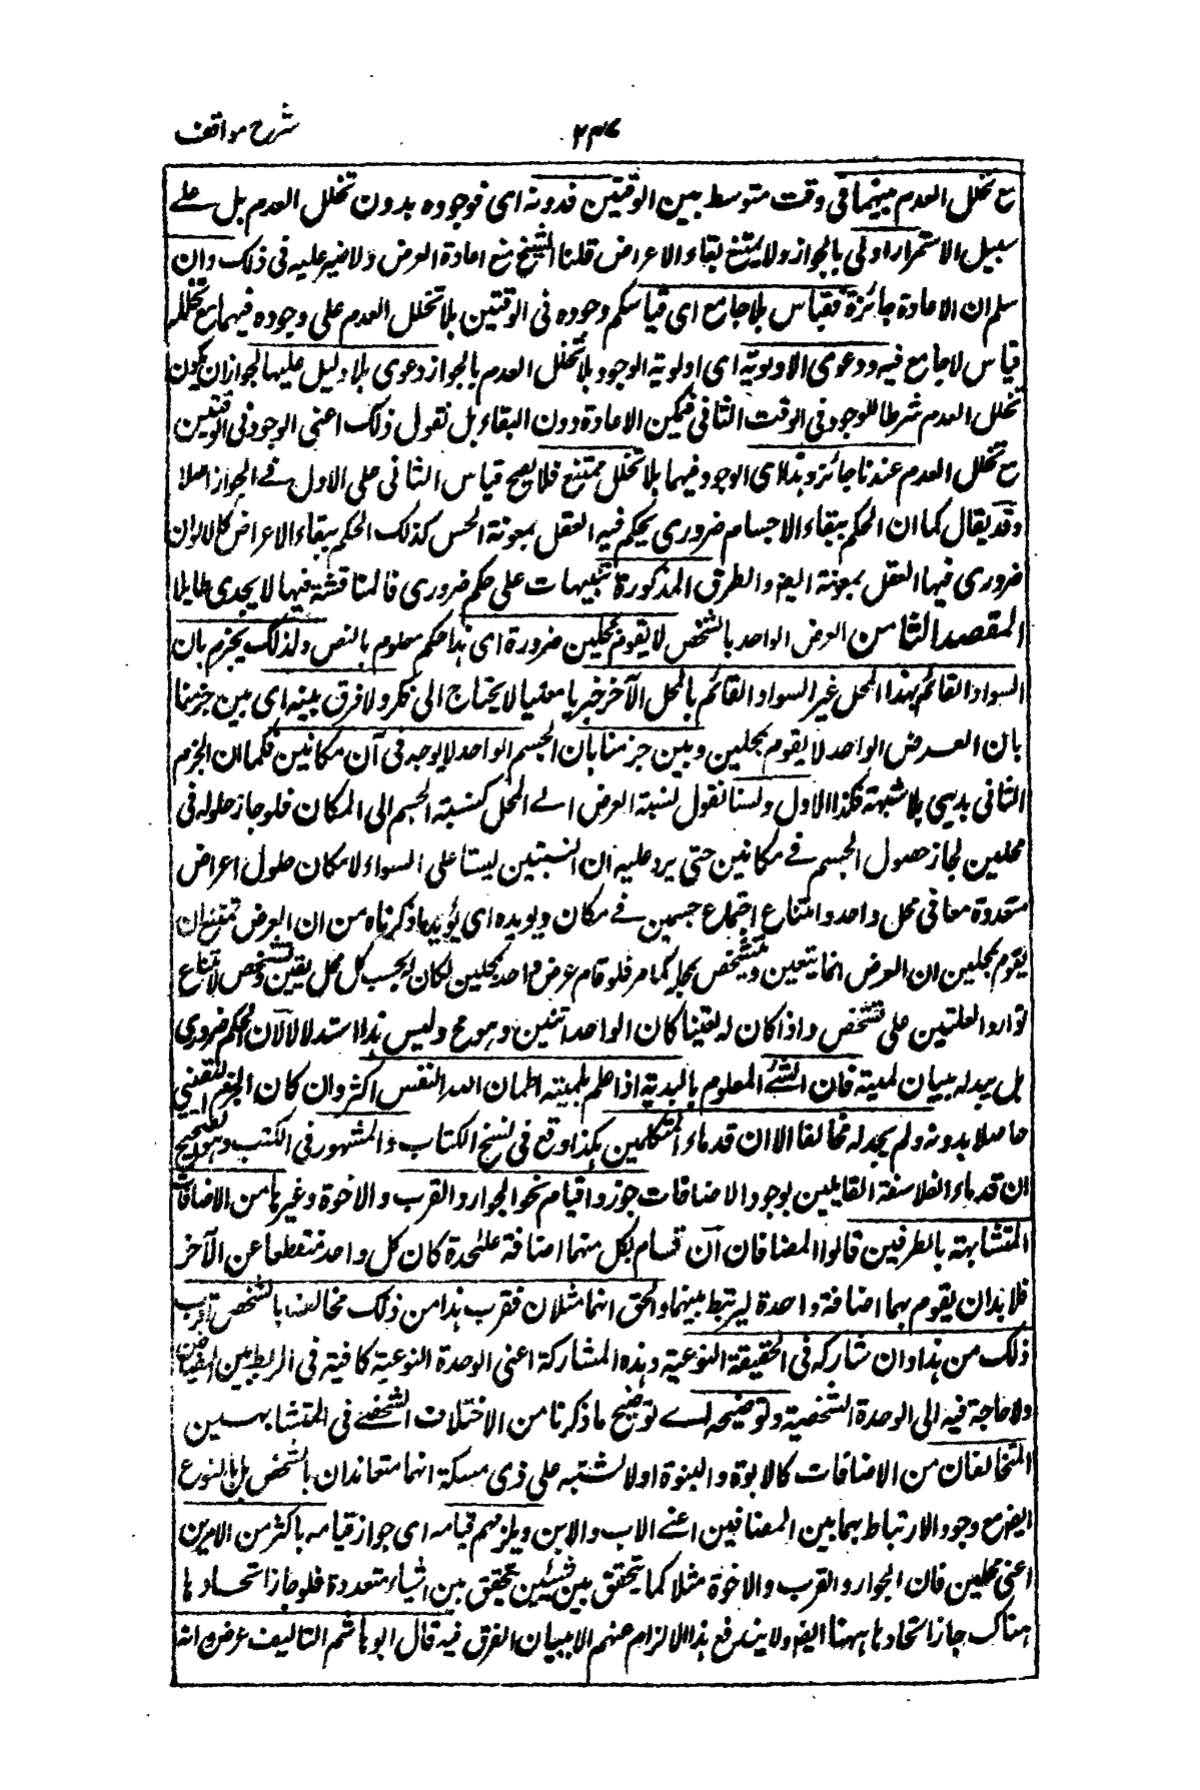 شرح مواقف
٢٣٧
مع تخلل العدم بينهما في وقت متوسط بين الوقتين فدونه اى فوجوده بدون تخلل العدم بل علے
سبيل الاستمرار اولى بالجواز ولا يمتنع بقاء الاعراض قلنا الشيخ منع اعادة العرض ولا ضير عليه فى ذلك وان
سلم ان الاعادة جائزة فقياس بلا جامع اى قياسكم وجوده فى الوقتين بلا تخلل العدم على وجوده فيهما مع تخلله
قياس لا جامع فيه ودعوى الاولوية اى اولوية الوجود بلا تخلل العدم بالجواز دعوى بلا دليل عليها لجواز ان يكون
تخلل العدم شرطا للوجود فى الوقت الثانى فيمكن الاعادة دون البقاء بل نقول ذلك اعنى الوجود فى الوقتين
مع تخلل العدم عندنا جائز وهذا اى الوجود فيهما بلا تخلل ممتنع فلا يصح قياس الثانى على الاول فے الجواز اصلا
وقد يقال كما ان الحكم ببقاء الاجسام ضرورى يحكم فيه العقل بمعونة الحس كذلك الحكم ببقاء الاعراض كالالوان
ضرورى فيها العقل بمعونة ايضا والطرق المذكورة تنبيهات على حكم ضرورى فالمناقشة فيها لا يجدى طايلا
المقصد الثامن العرض الواحد بالشخص لا يقوم بمحلين ضرورة اى هذا حكم معلوم بالنص ولذلك يجزم بان
السواد القائم بهذا المحل غير السواد القائم بالمحل الآخر جزما يقينيا لا يحتاج الى فكر ولا فرق بينه اى بين جزمنا
بان العرض الواحد لا يقوم بمحلين وبين جزمنا بان الجسم الواحد لا يوجد فى آن مكانين فكما ان الجزم
الثانى بديهى بلا شبهة فكذا الاول ولسنا نقول نسبة العرض الے المحل كنسبة الجسم الى المكان فلو جاز حلوله فى
محلين لجاز حصول الجسم فے مكانين حتى يرد عليه ان النسبتين ليستا على السواء لامكان حلول اعراض
متعددة معا فى محل واحد وامتناع اجتماع جسمين فے مكان ويويده اى يؤيد ما ذكرناه من ان العرض يمتنع ان
يقوم بمحلين ان العرض انما يتعين ويتشخص بمحله كما مر فلو قام عرض واحد بمحلين لكان له بحسب كل محل تعين وتشخص لامتناع
توارد العلتين على تشخص واذا كان له تعينان كان الواحد اثنين وهو مح وليس هذا استدلالا لان الحكم ضرورى
بل بيد له بيان لميته فان الشئ المعلوم بالبديهة اذا علم بلميته اطمان اليه النفس اكثر وان كان الجزم اليقينى
حاصلا بدونه ولم يجد له مخالفا الا ان قدماء المتكلمين هكذا وقع فى نسخ الكتاب والمشهور فى الكتب وهو الصحيح
ان قدماء الفلاسفة القايلين بوجود الاضافات جوزوا قيام نحو الجوار والقرب والاخوة وغيرها من الاضافات
المتشابهة بالطرفين قالوا المضافان ان قام بكل منهما اضافة علٰحدة كان كل واحد منقطعا عن الآخر
فلا بد ان يقوم بهما اضافة واحدة ليرتبط بينهما والحق انهما مثلان فقرب هذا من ذلك مخالف بالشخص لقرب
ذلك من هذا وان شاركه فى الحقيقة النوعية وهذه المشاركة اعنى الوحدة النوعية كافية فى الربط بين المضافين
ولا حاجة فيه الى الوحدة الشخصية وتوضيحه اے توضيح ما ذكرنا من الاختلاف الشخصے فى المتشابهين
المتخالفان من الاضافات كالابوة والبنوة اولا يشتبه على ذى مسكة انهما متعاندان بالشخص بل بالنوع
ايضا مع وجود الارتباط بهما بين المضافين اعنے الاب والابن ويلزمهم قيامه اى جواز قيامه باكثر من الامرين
اعنى محلين فان الجوار والقرب والاخوة مثلا كما يتحقق بين شيئين يتحقق بين اشياء متعددة فلو جاز اتحادها
هناك جاز اتحادها ههنا ايضا ولا يندفع هذا الالزام عنهم الا ببيان الفرق فيه قال ابو هاشم التاليف عرض وانه